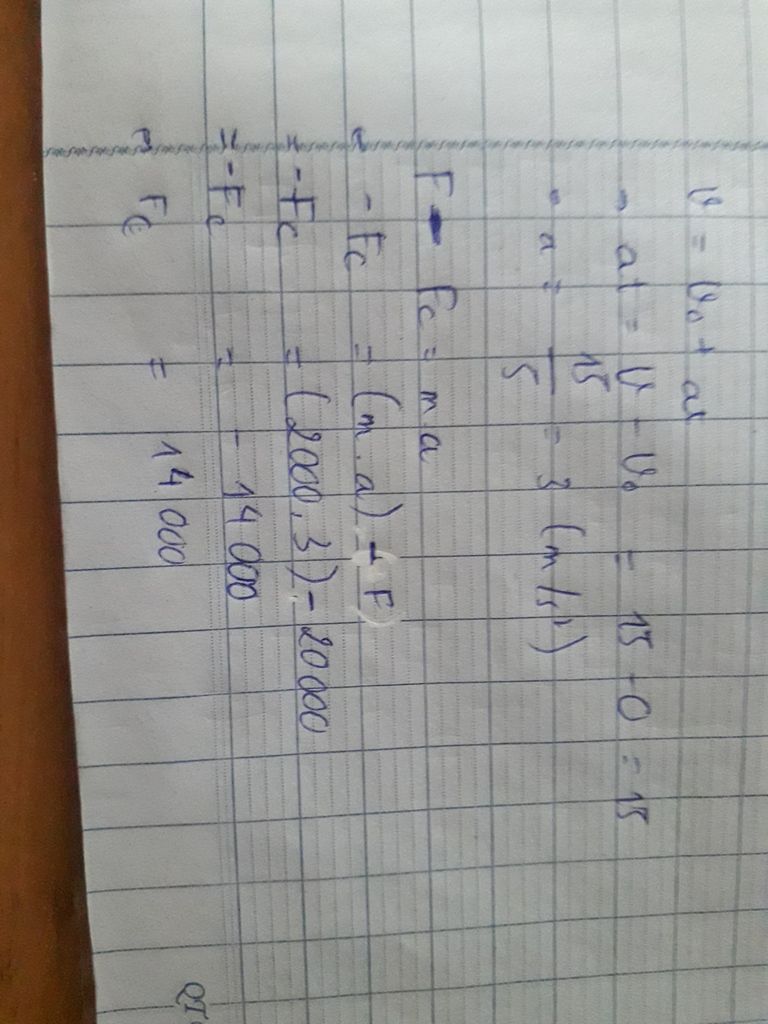 v = v₀ + at
→ at = v - v₀ = 15 - 0 = 15
→ a = 15/5 = 3 (m/s²)
F - Fc = m.a
⇒ -Fc = (m.a) - F
⇒ -Fc = (2000.3) - 20000
⇒ -Fc = -14000
⇒ Fc = 14000